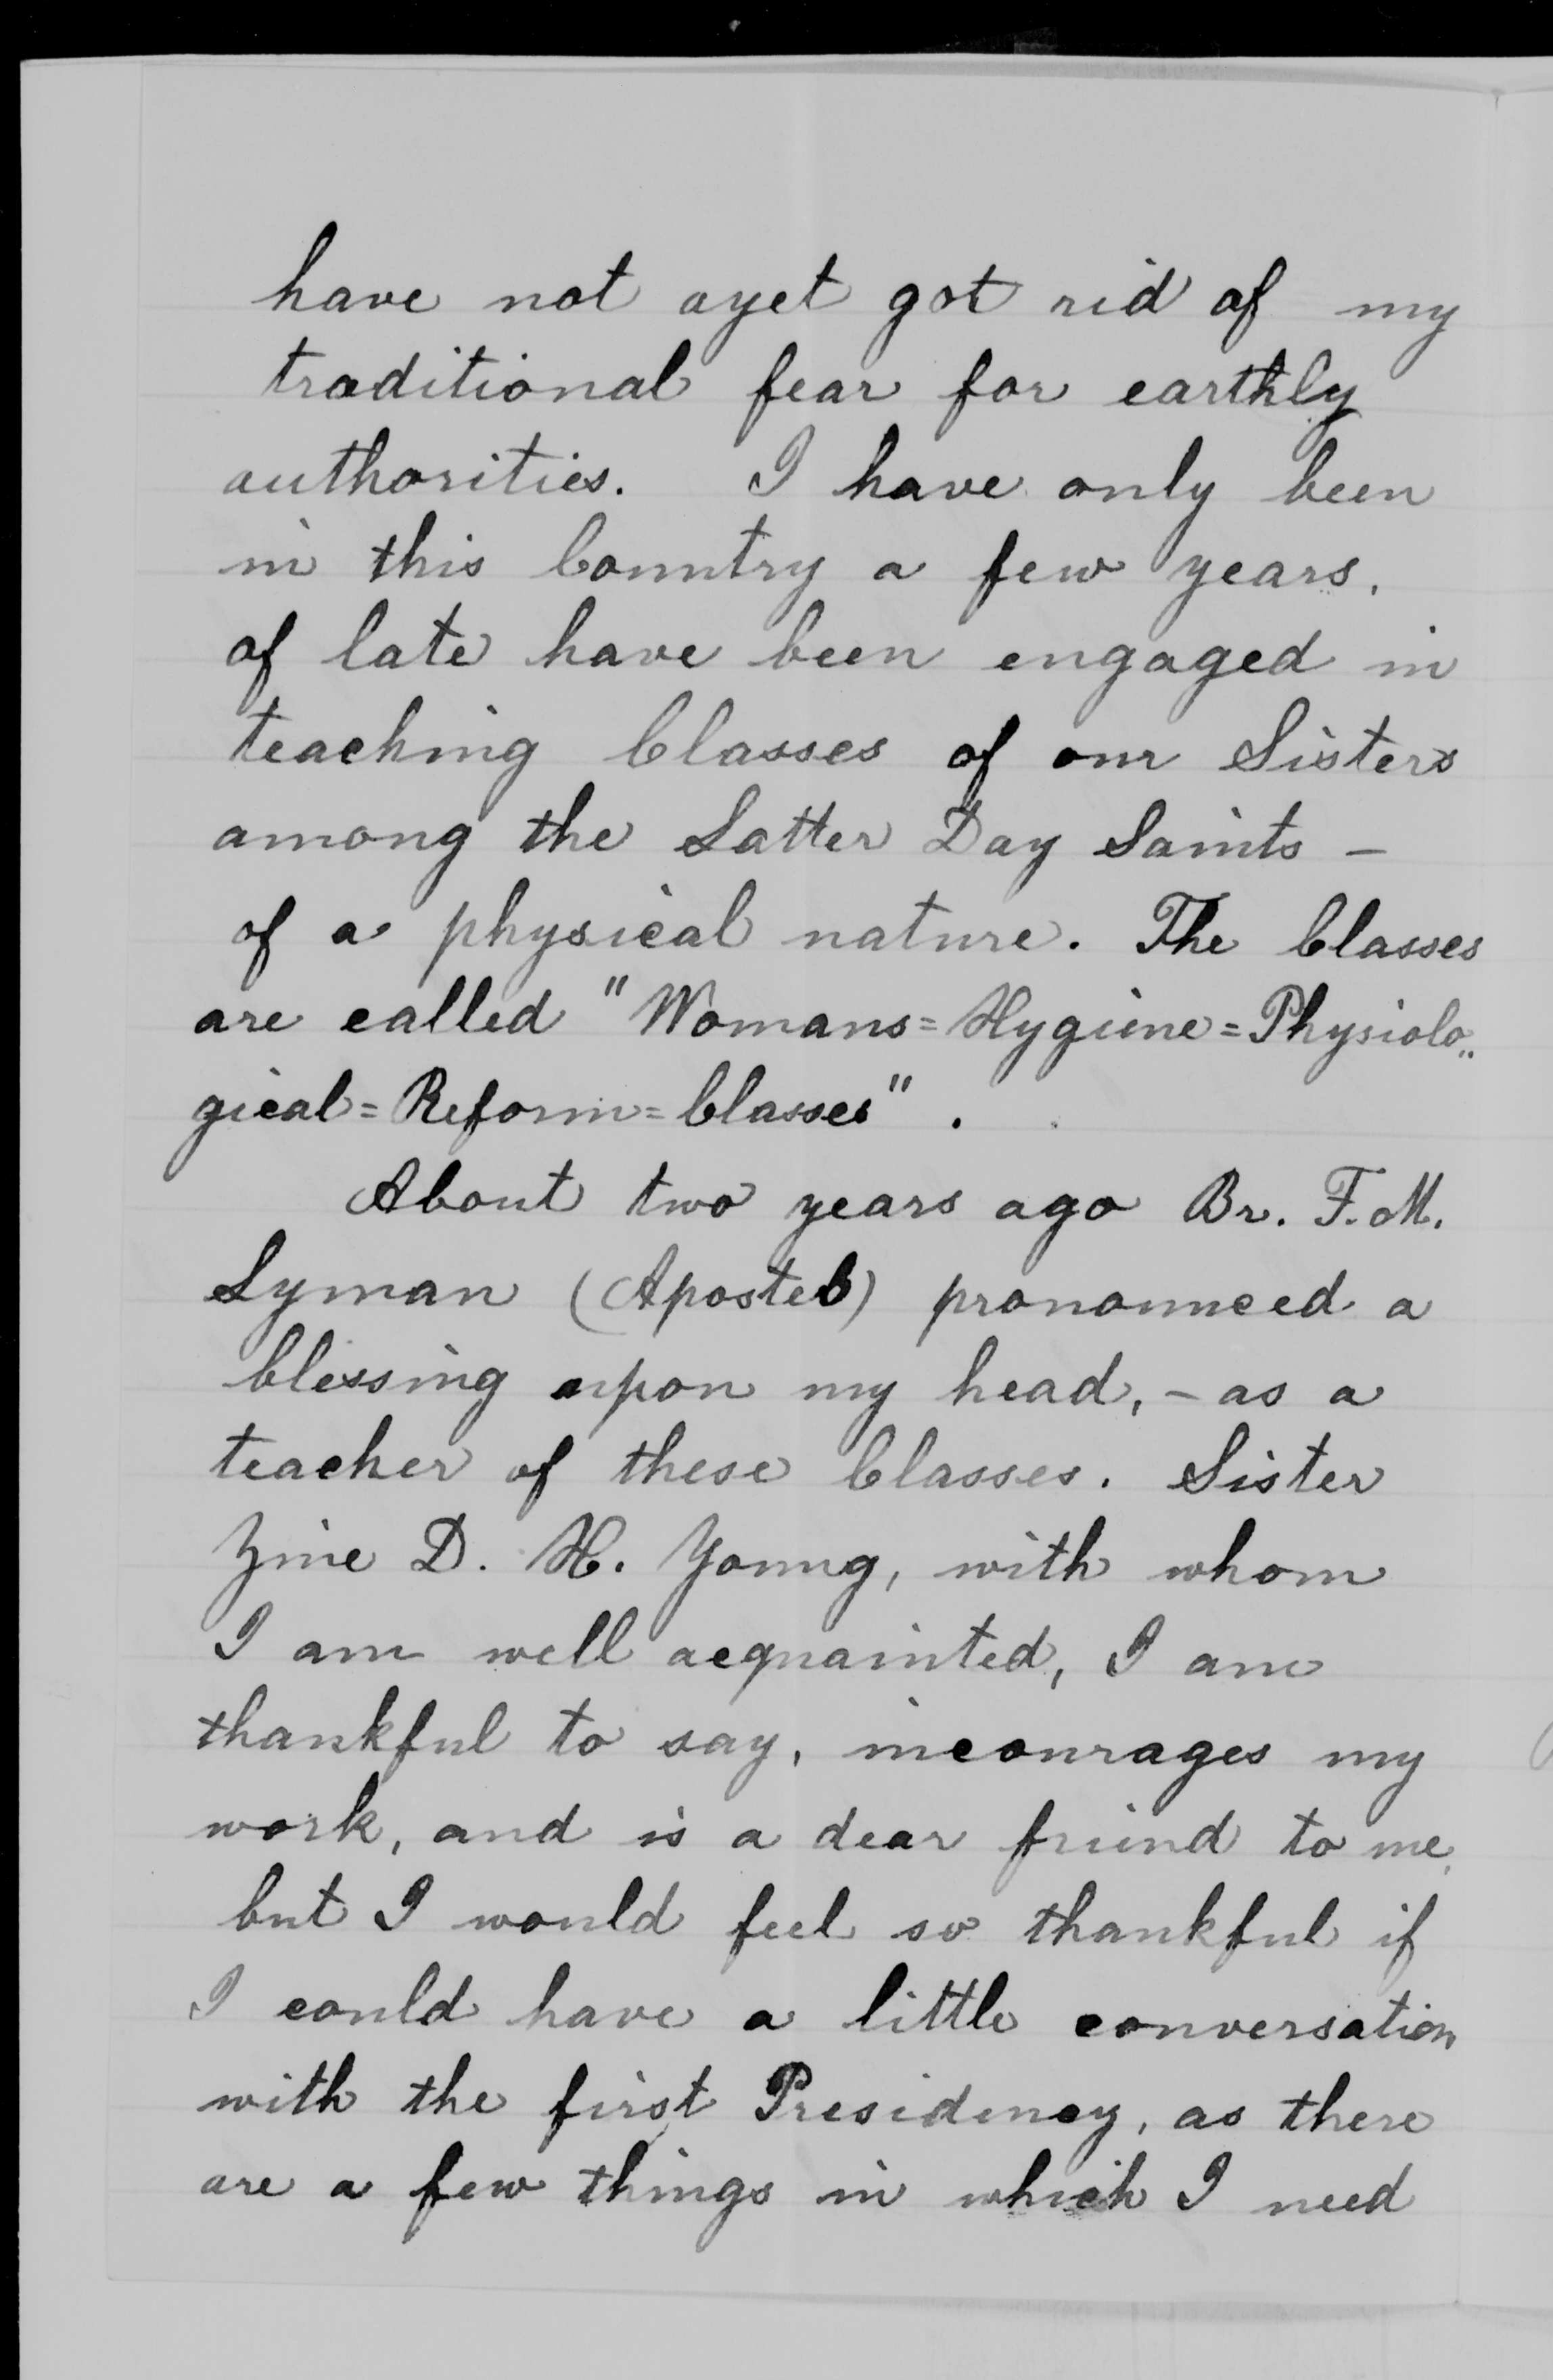 have not ayet got rid of my
traditional fear for earthly
authorities. I have only been
in this Country a few years,
of late have been engaged in
teaching Classes of our Sisters
among the Latter Day Saints –
of a physical nature. The Classes
are called "Womans=Hygiene=Physiolo„
gical=Reform=Classes".
About two years ago Br. F. M.
Lyman (Apostel) pronounced a
blessing upon my head, – as a
teacher of these Classes. Sister
Zine D. H. Young, with whom
I am well acquainted, I am
thankful to say, incourages my
work, and is a dear friend to me,
but I would feel so thankful if
I could have a little conversation
with the first Presidency, as there
are a few things in which I need